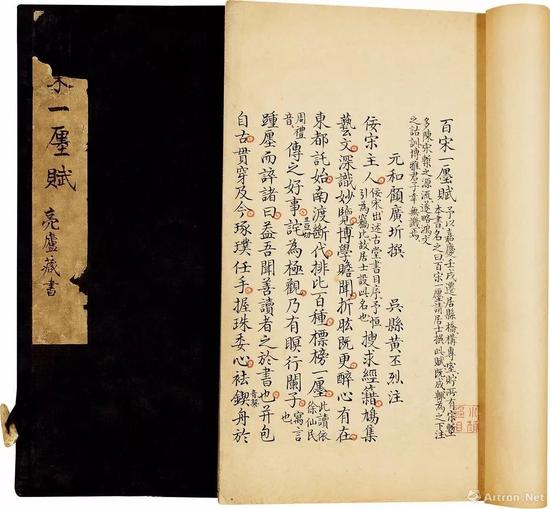 宋一廛賦
亮廬藏書
百宋一廛賦 予以嘉慶壬戌遷居縣橋構專室貯所有宋槧
本書名之曰百宋一廛請居士撰此賦既成輒為之下注
多陳宋槧之源流遂略鴻文
之詁訓博雅君子幸無譏焉
元和顧廣圻撰 吳縣黃丕烈注
佞宋主人 佞宋出述古堂書目序予恒
引為竊比故居士設此名也 搜求經籍鳩集
藝文深識妙覽博學瞻聞折肱既更醉心有在
東都託始南渡斷代排比百種標榜一廛 此讀依
徐仙民
周禮
音 傳之好事詫為極觀乃有瞑行闌子 寓言
也
踵廛而誶諸曰益吾聞善讀者之於書也并包
自古貫穿及今琢璞任手握珠委心袪鍥舟於
Artron.Net